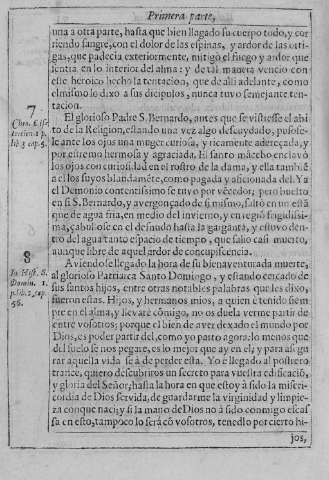 Primera parte,
una a otra parte, hasta que bien llagado su cuerpo todo, y cor
riendo sangre, con el dolor de las espinas, y ardor de las orti-
gas, que padecia exteriormente, mitigò el fuego y ardor que
sentia en lo interior del alma: y de tal manera vencio con
este heroico hecho la tentacion, que de alli adelante, como
el mismo lo dixo a sus dicipulos, nunca tuvo semejante ten-
tacion.
7
El glorioso Padre S. Bernardo, antes que se vistiesse el abi-
to de la Religion, estando una vez algo descuydado, puso se-
le ante los ojos una muger curiosa, y ricamente adereçada, y
por estremo hermosa y agraciada. El santo mãcebo enclavò
los ojos con curiosidad en el rostro de la dama, y ella tambiẽ
a el los suyos blandamẽte, como pagada y aficionada del. Ya
el Demonio contentissimo se tuvo por vẽcedor; pero buelto
en si S. Bernardo, y avergonçado de si mismo, saltò en un estã
que de agua fria, en medio del invierno, y en regiõ frigidissi-
ma, çabullose en el desnudo hasta la garganta, y estuvo den-
tro del agua tanto espacio de tiempo, que salio casi muerto,
aunque libre de aquel ardor de concupiscencia.
Chro. Ciste
lib 3 cap 5.
8
Aviendo le llegado la hora de su bienaventurada muerte,
al glorioso Patriarca Santo Domingo, y estando cercado de
sus santos hijos, entre otras notables palabras que les dixo,
fueron estas. Hijos, y hermanos mios, a quien ẽ tenido siem
pre en el alma, y llevarè cõmigo, no os duela verme partir de
entre vosotros; porque el bien de aver dexado el mundo por
Dios, es poder partir del, como yo parto agora: lo menos que
del suelo se nos pegare, es lo mejor que ay en el, y para assegu
rar aquella vida se à de perder esta. Yo è llegado al postrero
trance, quiero descubriros un secreto para vuestra edificaciõ,
y gloria del Señor; hasta la hora en que estoy à sido la miseri-
cordia de Dios servida, de guardarme la virginidad y limpie-
za con que naci; y si la mano de Dios no à sido conmigo escas
sa en esto; tampoco lo serà cõ vosotros, tenedlo por cierto hi-
In Hist. S.
Domin. 1.
p. lib. 2, cap
56.
jos,